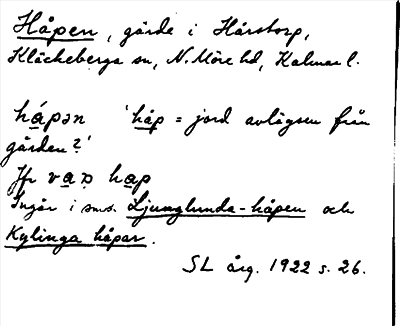 Håpen, gärde i Hårstorp,
Kläckeberga sn, N. Möre hd, Kalmar l.
håpən 'håp = jord avlägsen från
gården?'
Jfr hap
Ingår i sms. Ljunglunda-håpen och
Kylinga håpar.
SL årg. 1922 s. 26.